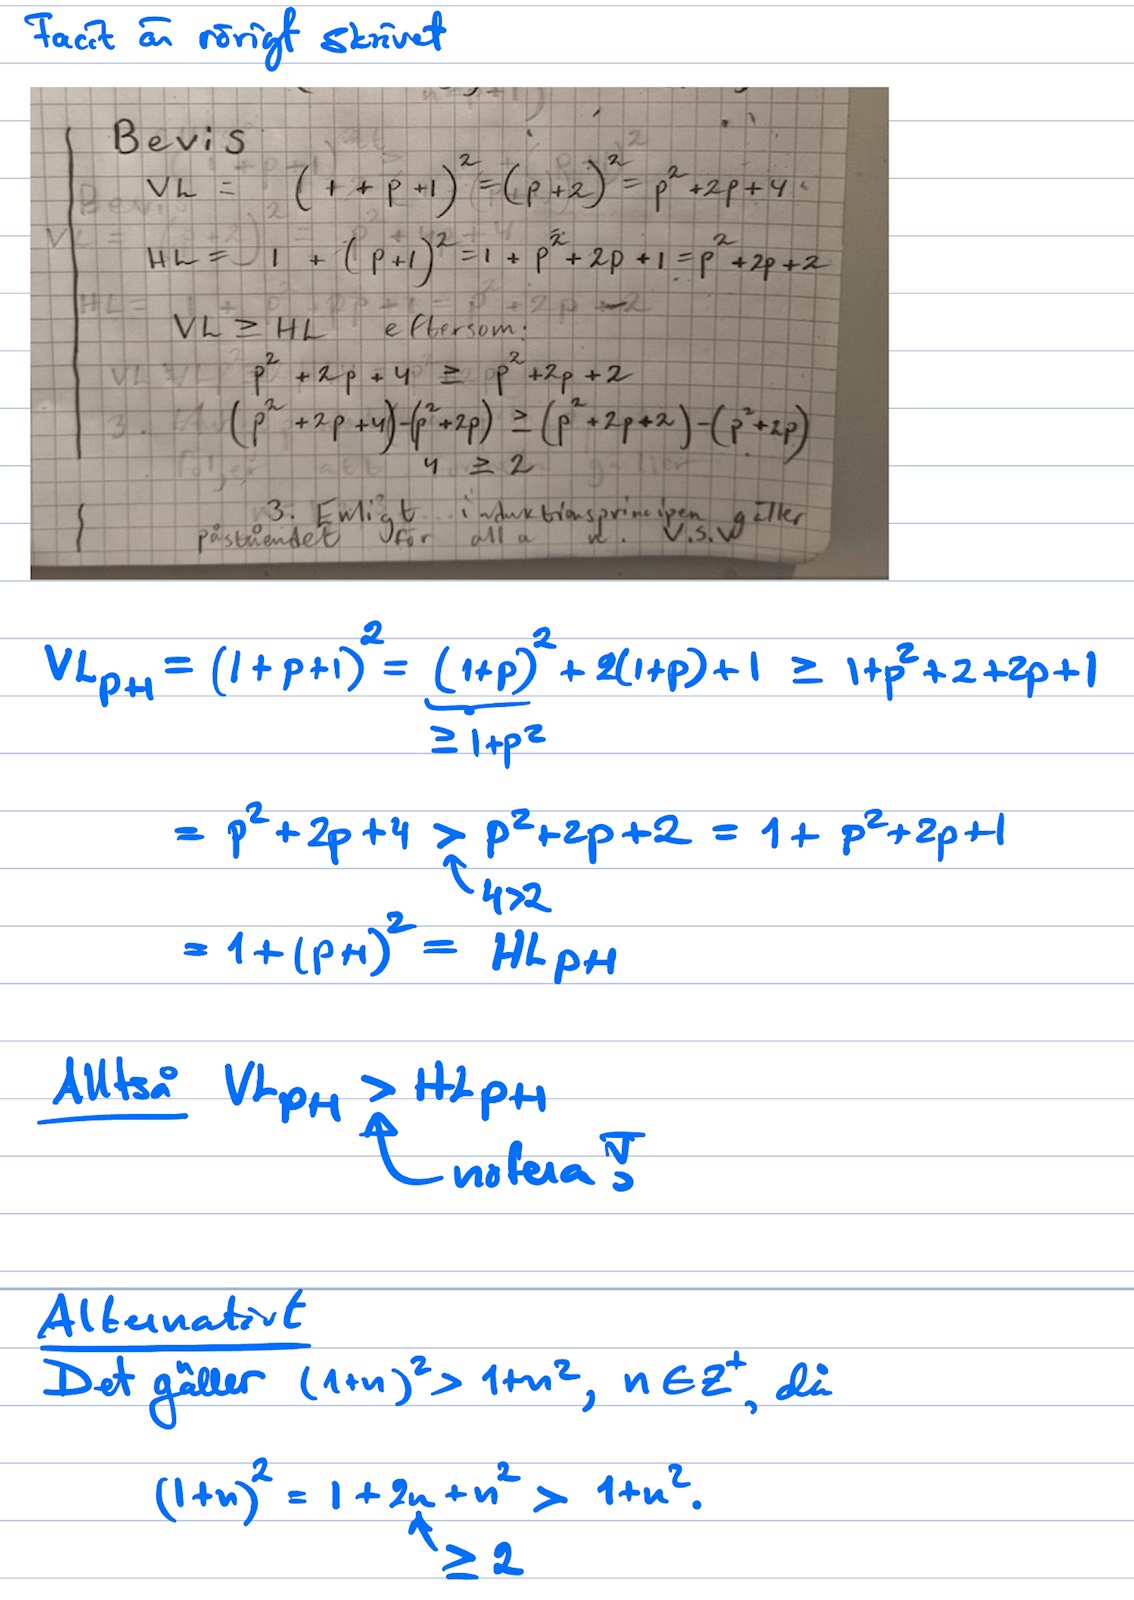 Facit är rörigt skrivet
Bevis
VL = (1 + p + 1)² = (p+2)² = p² + 2p + 4
HL = 1 + (p+1)² = 1 + p² + 2p + 1 = p² + 2p + 2
VL ≥ HL eftersom:
p² + 2p + 4 ≥ p² + 2p + 2
(p² + 2p + 4) - (p² + 2p) ≥ (p² + 2p + 2) - (p² + 2p)
4 ≥ 2
3. Enligt induktionsprincipen gäller
påståendet för alla n. V.S.W
VL_{p+1} = (1+p+1)² = (1+p)² + 2(1+p) + 1 ≥ 1+p²+2+2p+1
≥ 1+p²
= p²+2p+4 > p²+2p+2 = 1 + p²+2p+1
4>2
= 1+(p+1)² = HL_{p+1}
Alltså VL_{p+1} > HL_{p+1}
notera
Alternativt
Det gäller (1+n)² > 1+n², n ∈ Z⁺, då
(1+n)² = 1 + 2n + n² > 1+n².
≥ 2